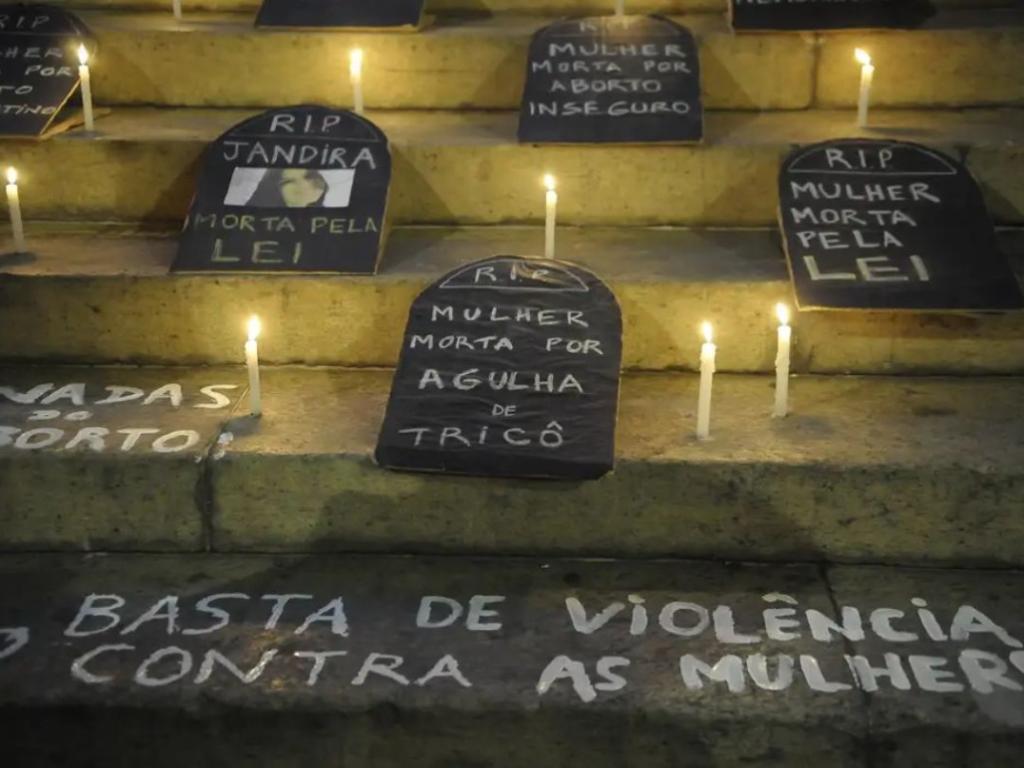 R I P
R I P
MULHER
MORTA POR
ABORTO
INSEGURO
POR
R.I.P.
JANDIRA
MORTA PELA
LEI
R.I.P
MULHER
MORTA
PELA
LEI
R.I.P
MULHER
MORTA POR
AGULHA
DE
TRICÔ
DO
BASTA DE VIOLÊNCIA
CONTRA AS MULHER